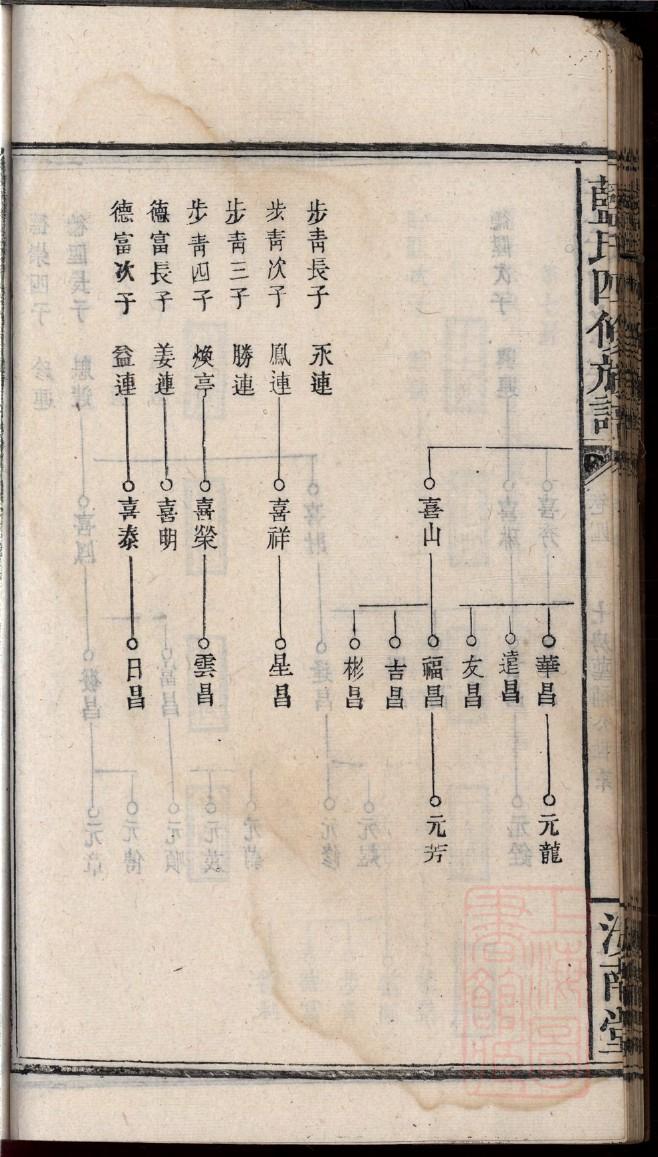 藍氏四修族譜
汝南堂
喜秀
華昌
元龍
達昌
友昌
喜山
福昌
元芳
吉昌
彬昌
步靑長子 永連
步靑次子 鳳連
喜祥
星昌
步靑三子 勝連
步靑四子 煥亭
喜榮
雲昌
德富長子 姜連
喜明
德富次子 益連
喜泰
日昌
上海圖書館藏